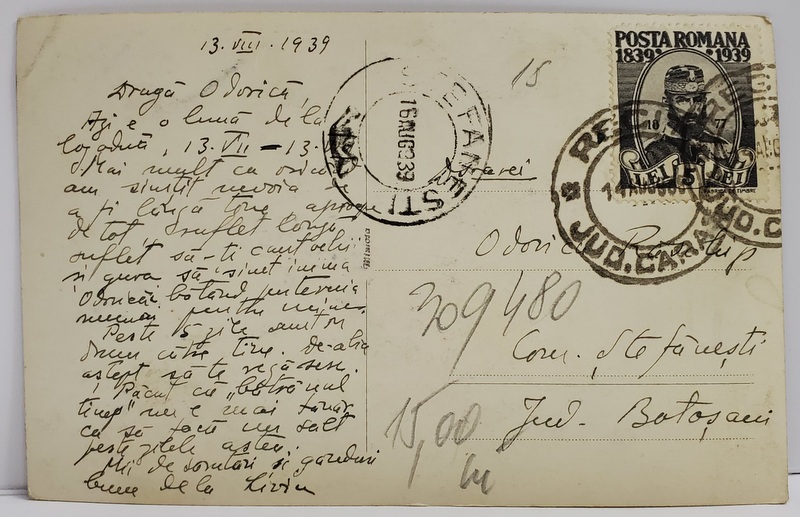 13.VIII.1939
Dragă Odorică,
Azi e o lună de la
logodnă, 13.VII – 13.
Mai mult ca oricând
am simțit nevoia
a fi lângă tine aproape
de tot, suflet lângă
suflet să-ți caut ochii
și gura să-ți simt inima
Odorică bătând puternic
numai pentru mine.
Peste 15 zile sunt în
drum către tine. De-abia
aștept să te regăsesc.
Păcat că „bătrânul
timp” nu e mai tânăr
ca să facă un salt
peste zilele astea.
Mii de sărutări și gânduri
bune de la Liviu
15
POSTA ROMANA
1839 1939
18 77
LEI 5 LEI
FABRICA DE TIMBRE
ȘTEFĂNEȘTI
16 AUG 939
REȘIȚA
14 AUG 939
JUD. CARAȘ
JUD. C
Mimosa
Odorica
309480
Com. Ștefănești
Jud. Botoșani
15,00
lei